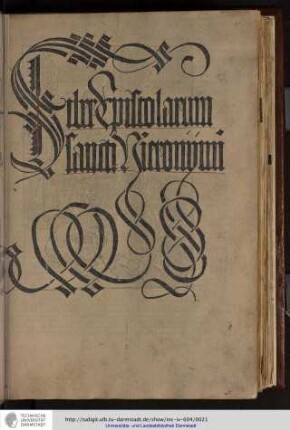 Liber Epistolarum
sancti Hieronimi
TECHNISCHE
UNIVERSITÄT
DARMSTADT
http://tudigit.ulb.tu-darmstadt.de/show/inc-iv-604/0021
Universitäts- und Landesbibliothek Darmstadt